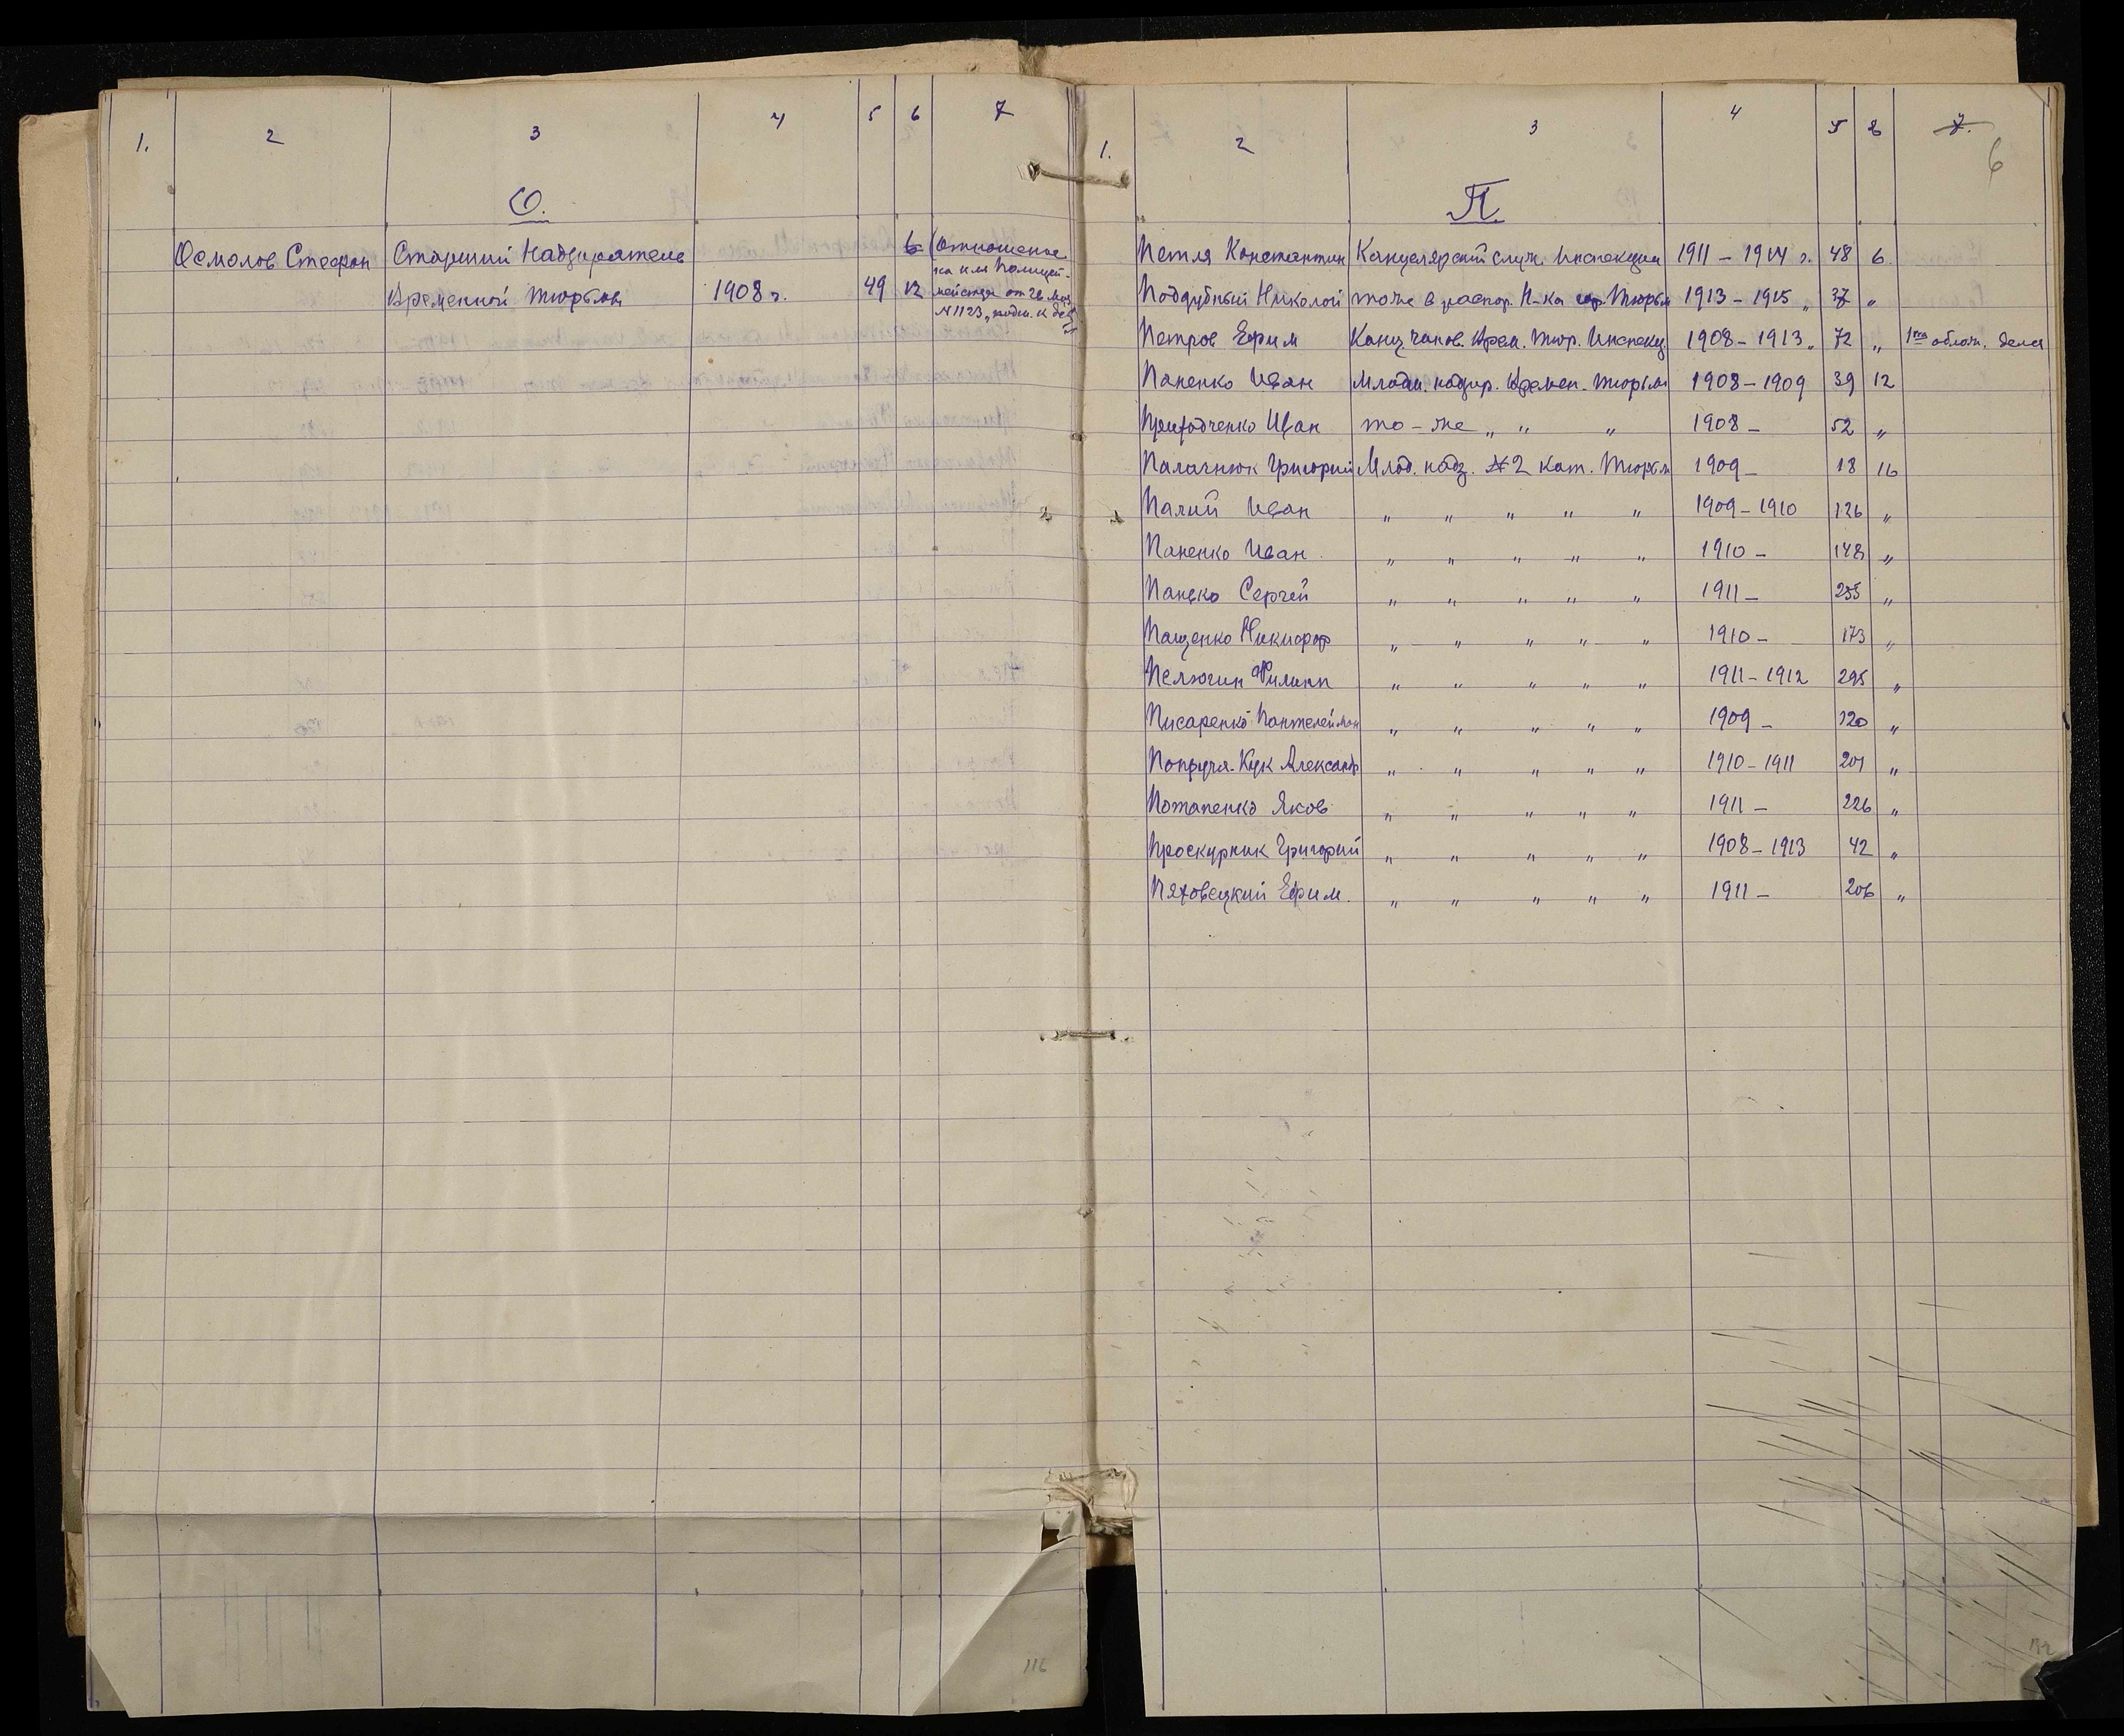 1. 2 3 4 5 6 7
О.
Осмолов Стефан Старший Надзиратель 6 (отношение
на имя Полицей-
Временной тюрьмы 1908 г. 49 12 мейстера от 26 мая
№ 1123, подш. к делу
1. 2 3 4 5 6 7.
6
П.
Петля Константин Канцелярский служ. Инспекции 1911 – 1914 г. 48 6
Поддубный Николай тоже в распор. Н-ка Тюрьм 1913 – 1915 „ 37 „
Петров Ефим Канц. чинов. Врем. Тюр. Инспекц. 1908 – 1913 „ 72 „ 1ая облож. дела
Паненко Иван Младш. надзир. Времен. тюрьмы 1908 – 1909 39 12
Приходченко Иван то-же „ „ „ 1908 – 52 „
Палачнюк Григорий Млад. надз. № 2 кат. Тюрьм 1909 – 18 16
Палий Иван „ „ „ „ „ 1909 – 1910 126 „
Паненко Иван „ „ „ „ „ 1910 – 148 „
Панько Сергей „ „ „ „ „ 1911 – 235 „
Пащенко Никифор „ „ „ „ „ 1910 – 173 „
Пелюгин Филипп „ „ „ „ „ 1911 – 1912 295 „
Писаренко Пантелеймон „ „ „ „ „ 1909 – 120 „
Попруга-Кук Александр „ „ „ „ „ 1910 – 1911 201 „
Потапенко Яков „ „ „ „ „ 1911 – 226 „
Проскурник Григорий „ „ „ „ „ 1908 – 1913 42 „
Пяховецкий Ефим. „ „ „ „ „ 1911 – 206 „
116